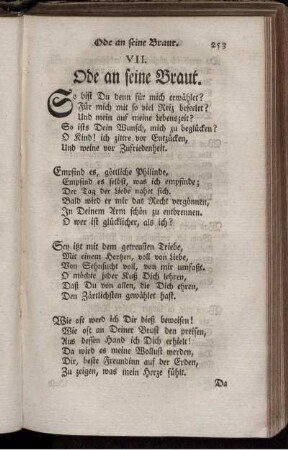 Ode an seine Braut. 253
VII.
Ode an seine Braut.
So bist Du denn für mich erwählet?
Für mich mit so viel Reiz beseelet?
Und mein auf meine Lebenszeit?
So ists Dein Wunsch, mich zu beglücken?
O Kind! ich zittre vor Entzücken,
Und weine vor Zufriedenheit.
Empfind es, göttliche Philinde,
Empfind es selbst, was ich empfinde;
Der Tag der Liebe nahet sich.
Bald wird er mir das Recht vergönnen,
In Deinem Arm schön zu entbrennen.
O wer ist glücklicher, als ich?
Sey itzt mit dem getreusten Triebe,
Mit einem Herzen, voll von Liebe,
Von Sehnsucht voll, von mir umfaßt.
O möchte jeder Kuß Dich lehren,
Daß Du von allen, die Dich ehren,
Den Zärtlichsten gewählet hast.
Wie oft werd ich Dir dieß beweisen!
Wie oft an Deiner Brust den preisen,
Aus dessen Hand ich Dich erhielt!
Da wird es meine Wollust werden,
Dir, beste Freundinn auf der Erden,
Zu zeigen, was mein Herze fühlt.
Da